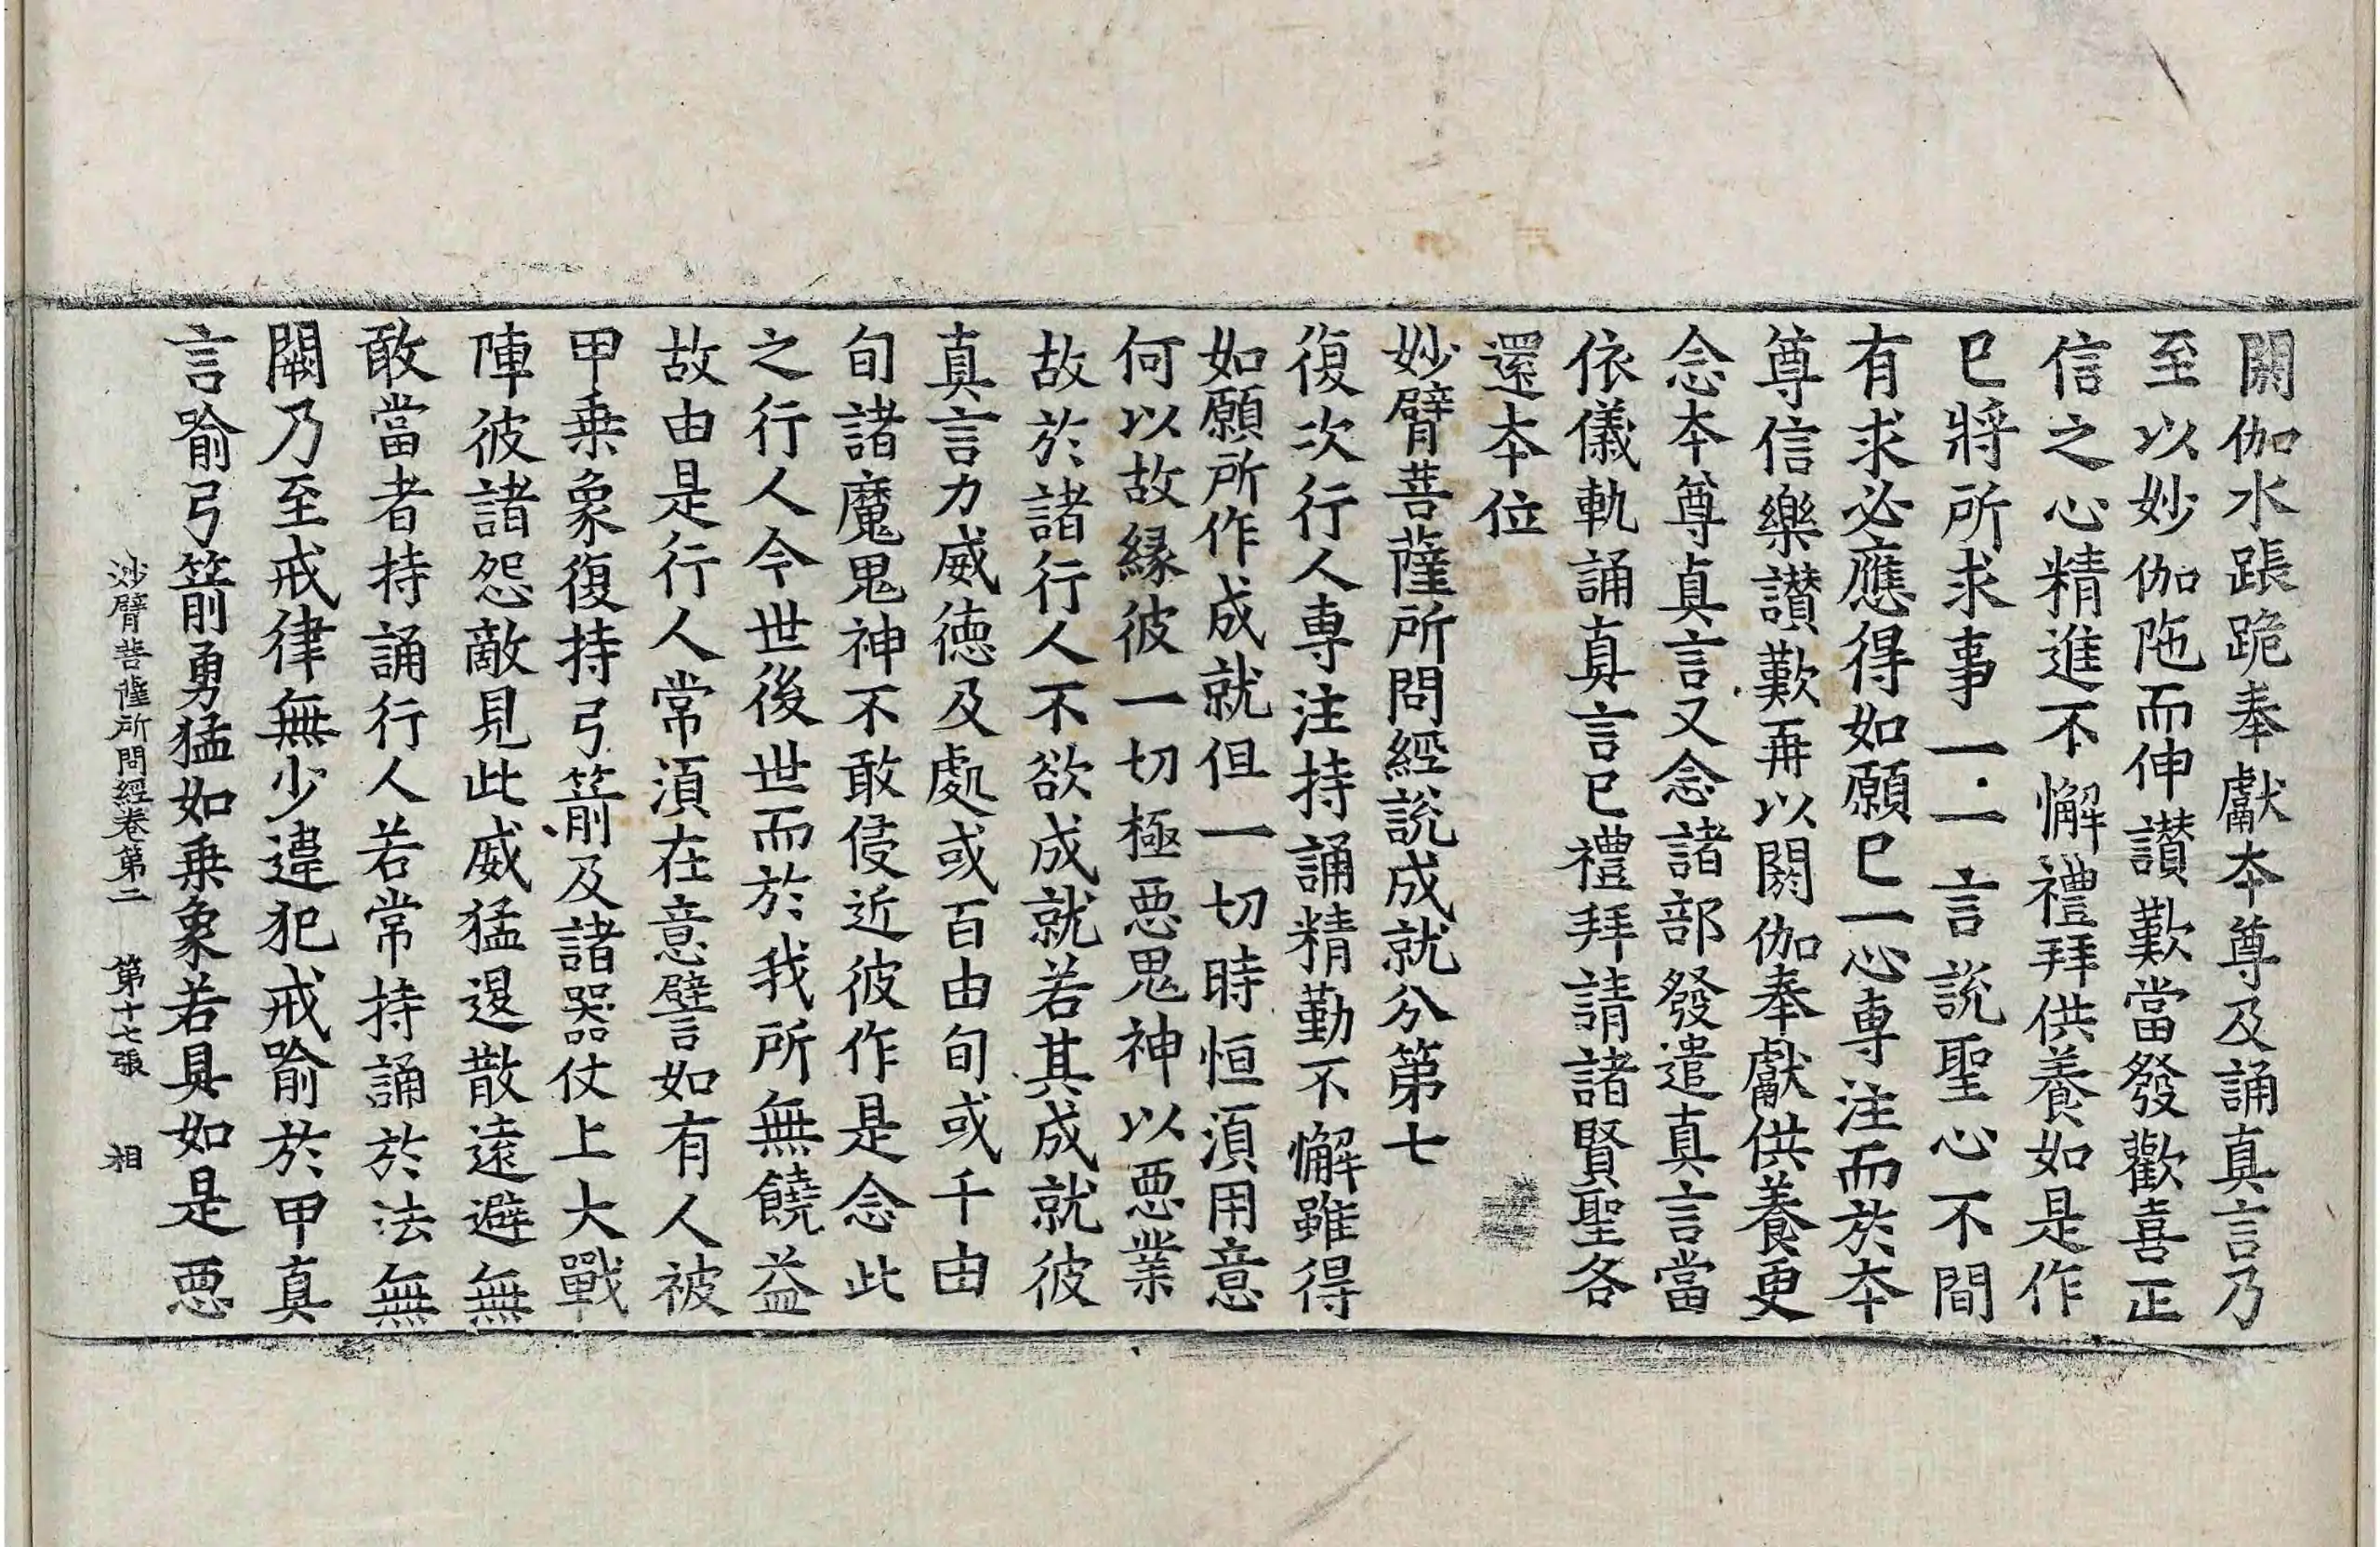 閼伽水䠆跪奉獻本尊及誦真言乃
至以妙伽陁而伸讃歎當發歡喜正
信之心精進不懈禮拜供養如是作
巳將所求事一一言說聖心不間
有求必應得如願巳一心専注而於本
尊信樂讃歎再以閼伽奉獻供養更
念本尊真言又念諸部發遣真言當
依儀軌誦真言巳禮拜請諸賢聖各
還本位
妙臂菩薩所問經說成就分第七
復次行人専注持誦精勤不懈雖得
如願所作成就但一切時恒湏用意
何以故縁彼一切極惡鬼神以惡業
故於諸行人不欲成就若其成就彼
真言力威德及處或百由旬或千由
旬諸魔鬼神不敢侵近彼作是念此
之行人今世後世而於我所無饒益
故由是行人常湏在意譬如有人被
甲乗象復持弓箭及諸器仗上大戰
陣彼諸怨敵見此威猛退散遠避無
敢當者持誦行人若常持誦於法無
闕乃至戒律無少違犯戒喻於甲真
言喻弓箭勇猛如乗象若具如是惡
妙臂菩薩所問經卷第二 第十七張 相